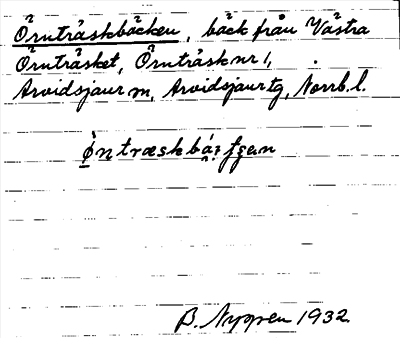 Örnträskbäcken, bäck från Västra
Örnträsket, Örnträsk nr 1,
Arvidsjaur sn, Arvidsjaur tg, Norrb. l.
B. Nygren 1932